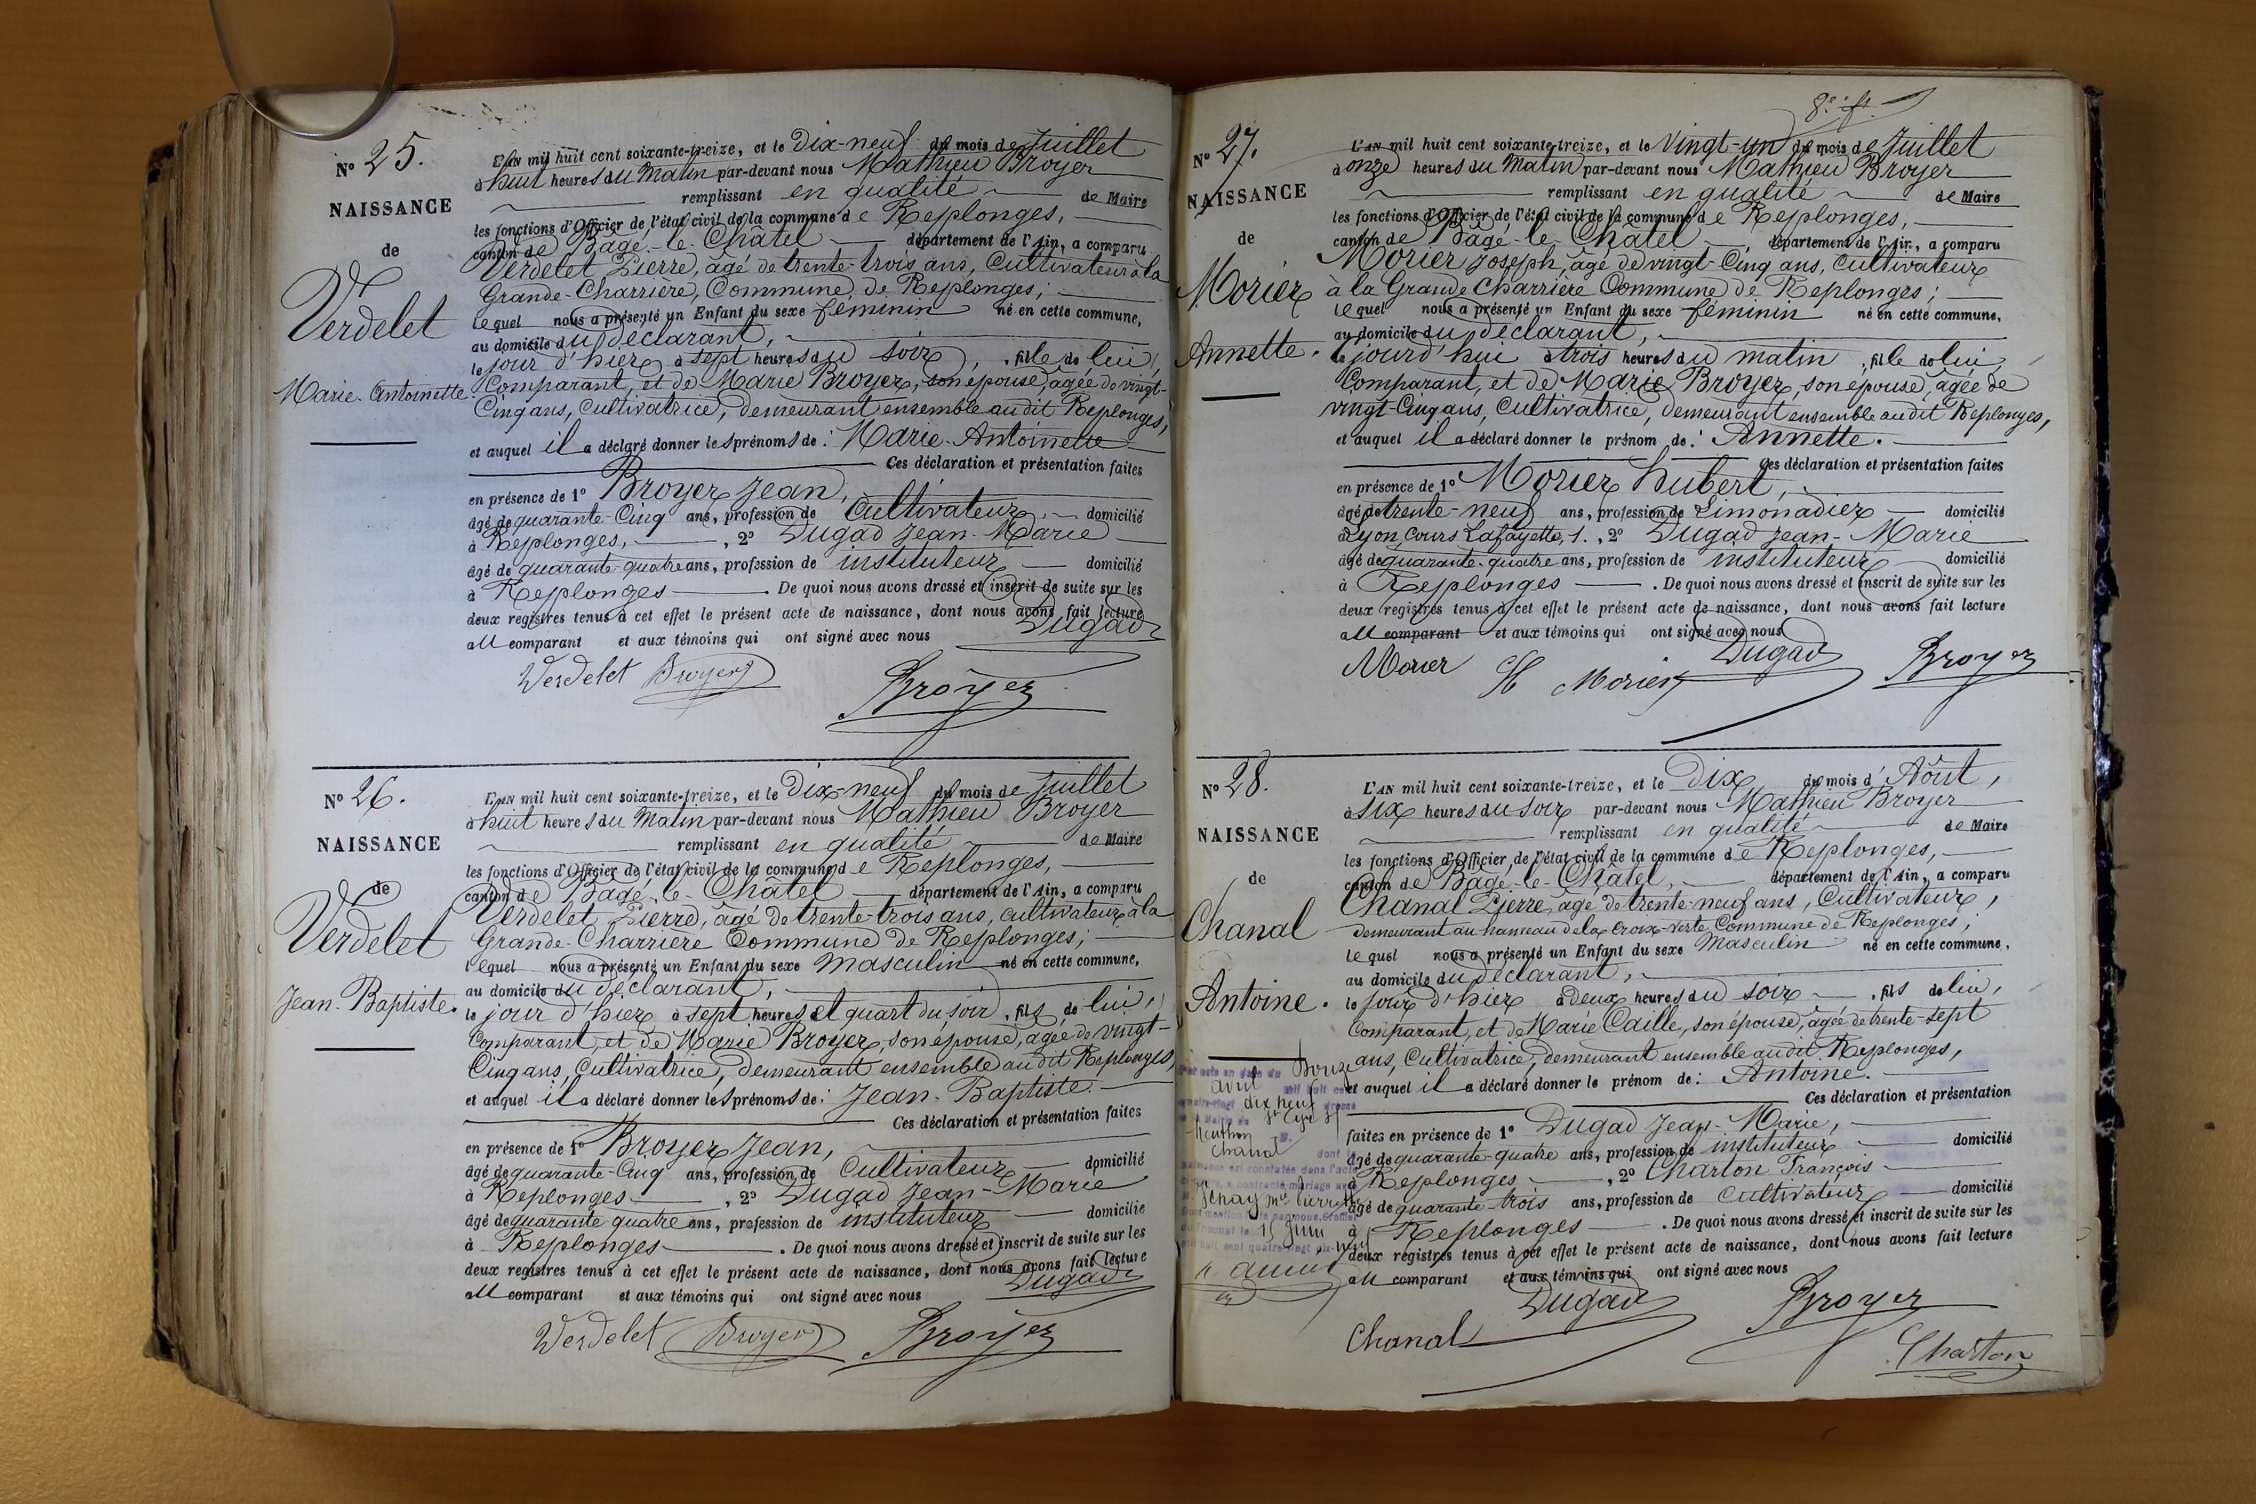 N° 25.
NAISSANCE
de
Verdelet
Marie-Antoinette
L'AN mil huit cent soixante-treize, et le Dix-neuf du mois de Juillet
à huit heures du Matin par-devant nous Mathieu Broyer
remplissant en qualité de Maire
les fonctions d'Officier de l'état civil de la commune de Replonges,
canton de Bâgé-le-Châtel département de l'Ain, a comparu
Verdelet Pierre, âgé de trente-trois ans, Cultivateur à la
Grande-Charrière, Commune de Replonges;
lequel nous a présenté un Enfant du sexe féminin né en cette commune,
au domicile du déclarant,
le jour d'hier à sept heures du soir, fille de lui,
Comparant, et de Marie Broyer, son épouse, âgée de vingt-
Cinq ans, Cultivatrice, demeurant ensemble audit Replonges,
et auquel il a déclaré donner les prénoms de: Marie-Antoinette
Ces déclaration et présentation faites
en présence de 1° Broyer Jean,
âgé de quarante-Cinq ans, profession de Cultivateur, domicilié
à Replonges, , 2° Dugad Jean-Marie
âgé de quarante-quatre ans, profession de instituteur domicilié
à Replonges . De quoi nous avons dressé et inscrit de suite sur les
deux registres tenus à cet effet le présent acte de naissance, dont nous avons fait lecture
au comparant et aux témoins qui ont signé avec nous Dugad
Verdelet Broyer Broyer
N° 26.
NAISSANCE
de
Verdelet
Jean-Baptiste.
L'AN mil huit cent soixante-treize, et le Dix-neuf du mois de Juillet
à huit heures du Matin par-devant nous Mathieu Broyer
remplissant en qualité de Maire
les fonctions d'Officier de l'état civil de la commune de Replonges,
canton de Bâgé-le-Châtel département de l'Ain, a comparu
Verdelet Pierre, âgé de trente-trois ans, cultivateur à la
Grande-Charrière Commune de Replonges;
lequel nous a présenté un Enfant du sexe masculin né en cette commune,
au domicile du déclarant,
le jour d'hier à sept heures et quart du soir, fils de lui,
Comparant, et de Marie Broyer, son épouse, âgée de vingt-
Cinq ans, Cultivatrice, demeurant ensemble audit Replonges,
et auquel il a déclaré donner les prénoms de: Jean-Baptiste.
Ces déclaration et présentation faites
en présence de 1° Broyer Jean,
âgé de quarante-Cinq ans, profession de Cultivateur domicilié
à Replonges , 2° Dugad Jean-Marie
âgé de quarante quatre ans, profession de instituteur domicilié
à Replonges . De quoi nous avons dressé et inscrit de suite sur les
deux registres tenus à cet effet le présent acte de naissance, dont nous avons fait lecture
au comparant et aux témoins qui ont signé avec nous Dugad
Verdelet Broyer Broyer
8e ft
N° 27.
NAISSANCE
de
Morier
Annette.
L'AN mil huit cent soixante-treize, et le Vingt-un du mois de Juillet
à onze heures du Matin par-devant nous Mathieu Broyer
remplissant en qualité de Maire
les fonctions d'Officier de l'état civil de la commune de Replonges,
canton de Bâgé-le-Châtel département de l'Ain, a comparu
Morier Joseph, âgé de vingt-Cinq ans, Cultivateur
à la Grande Charrière Commune de Replonges;
lequel nous a présenté un Enfant du sexe féminin né en cette commune,
au domicile du déclarant,
le jourd'hui à trois heures du matin, fille de lui,
Comparant, et de Marie Broyer, son épouse, âgée de
vingt-Cinq ans, Cultivatrice, demeurant ensemble audit Replonges,
et auquel il a déclaré donner le prénom de: Annette.
Ces déclaration et présentation faites
en présence de 1° Morier hubert,
âgé de trente-neuf ans, profession de Limonadier domicilié
à Lyon, Cours Lafayette, 1. , 2° Dugad Jean-Marie
âgé de quarante-quatre ans, profession de instituteur domicilié
à Replonges . De quoi nous avons dressé et inscrit de suite sur les
deux registres tenus à cet effet le présent acte de naissance, dont nous avons fait lecture
au comparant et aux témoins qui ont signé avec nous
Morier H Morier Dugad Broyer
N° 28.
NAISSANCE
de
Chanal
Antoine.
L'AN mil huit cent soixante-treize, et le Dix du mois d'Août,
à six heures du soir par-devant nous Mathieu Broyer
remplissant en qualité de Maire
les fonctions d'Officier de l'état civil de la commune de Replonges,
canton de Bâgé-le-Châtel, département de l'Ain, a comparu
Chanal Pierre, âgé de trente-neuf ans, Cultivateur,
demeurant au hameau de la Croix-Verte Commune de Replonges;
lequel nous a présenté un Enfant du sexe Masculin né en cette commune,
au domicile du déclarant,
le jour d'hier à deux heures du soir, fils de lui,
Comparant, et de Marie Caille, son épouse, âgée de trente-sept
ans, Cultivatrice, demeurant ensemble audit Replonges,
et auquel il a déclaré donner le prénom de: Antoine.
Ces déclaration et présentation
faites en présence de 1° Dugad Jean-Marie,
âgé de quarante-quatre ans, profession de instituteur domicilié
à Replonges , 2° Charton François
âgé de quarante-trois ans, profession de cultivateur domicilié
à Replonges . De quoi nous avons dressé et inscrit de suite sur les
deux registres tenus à cet effet le présent acte de naissance, dont nous avons fait lecture
au comparant et aux témoins qui ont signé avec nous
Chanal Dugad Broyer
Charton
acte en date du Douze
avril mil huit cent
dix neuf dressé
St Cyr s/
Menthon
Chanal
dont la
naissance est constatée dans l'acte
a contracté mariage avec
Pierrette
15 Juin